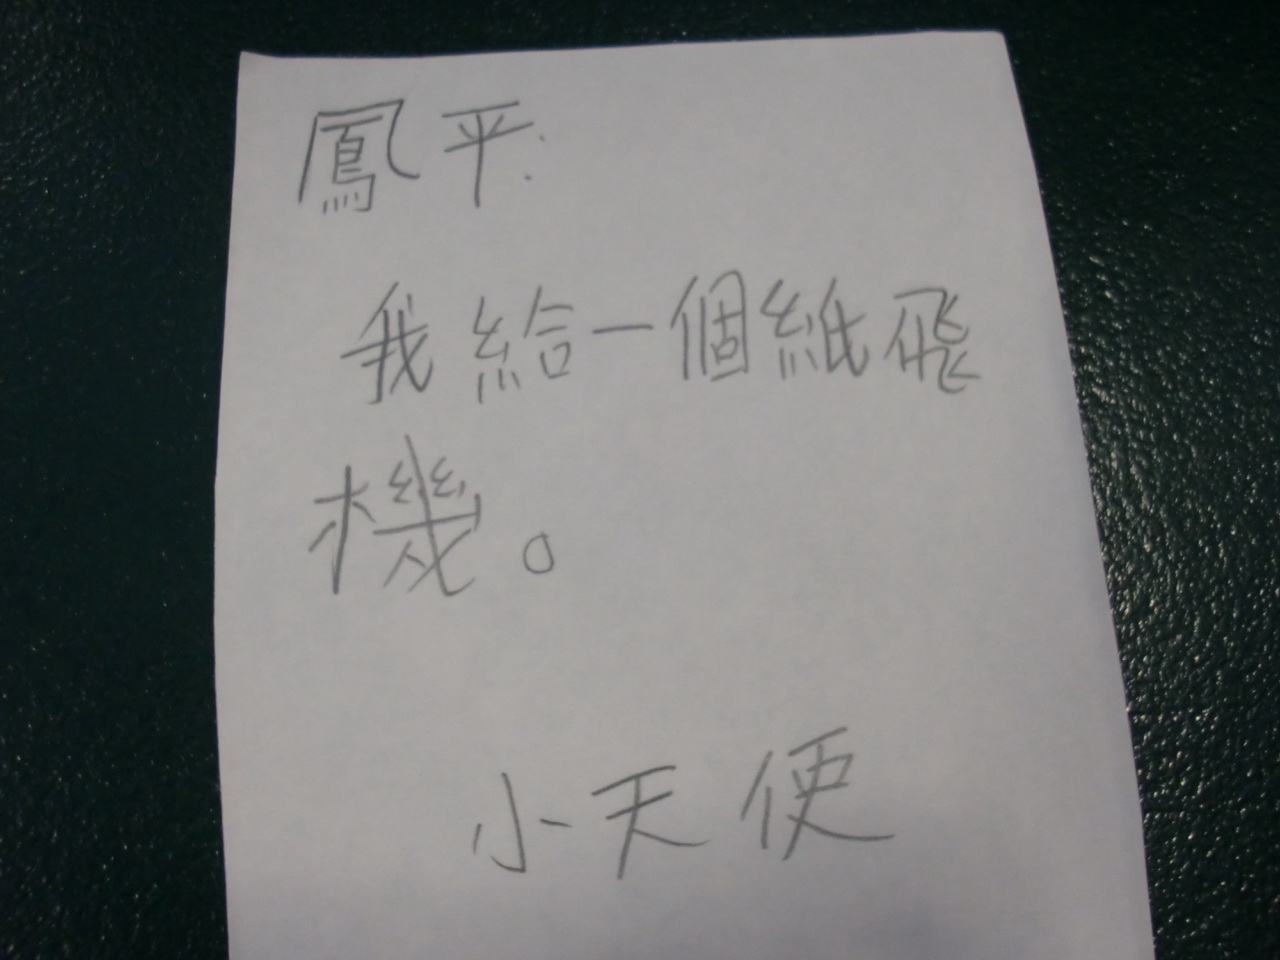 鳳平:
我給一個紙飛
機。
小天便